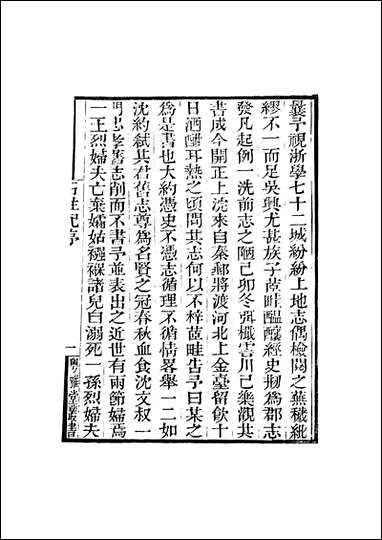 曩予視浙學七十二城紛紛上地志偶檢閱之蕪穢紕
繆不一而足吳興尤甚族子苽畦醖釀經史刱為郡志
發凡起例一洗前志之陋己卯冬弭檝霅川已樂觀其
書成今開正上浣來自秦郵將渡河北上金臺留飲十
日酒酣耳熱之頃問其志何以不梓苽畦告予曰某之
為是書也大約憑史不憑志循理不循情畧舉一二如
沈約弑其君舊志尊為名賢之冠春秋血食沈文叔一
門忠孝舊志削而不書予並表出之近世有兩節婦焉
一王烈婦夫亡棄孀姑襁褓諸兒自溺死一孫烈婦夫
石柱記序
一